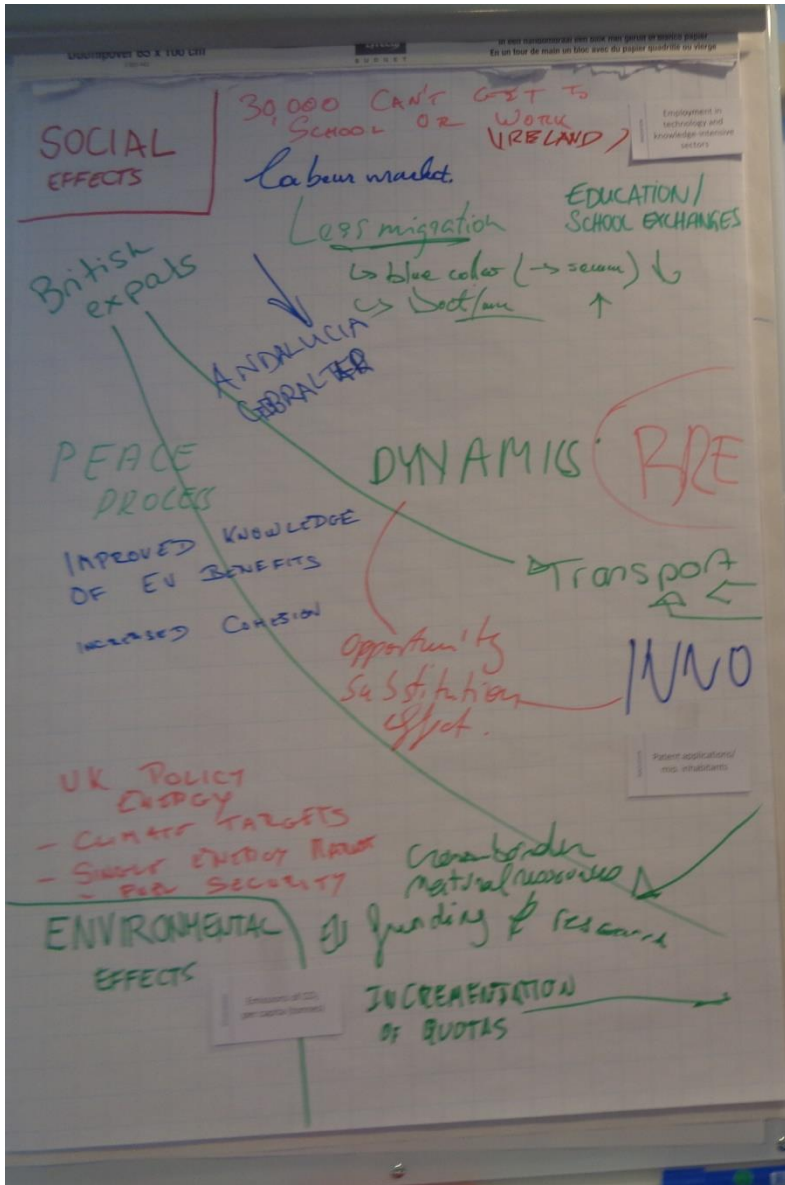 65 x 100 cm
BUDGET
En un tour de main un bloc avec du papier quadrillé ou vierge
SOCIAL
EFFECTS
30,000 CAN'T GET TO
SCHOOL OR WORK
(IRELAND)
Employment in
technology and
knowledge-intensive
sectors
labour market.
Less migration
EDUCATION/
SCHOOL EXCHANGES
↳ blue color (→ ) ↓
↳ ↑
British
expats
ANDALUCIA
GIBRALTAR
PEACE
PROCESS
DYNAMICS
IMPROVED KNOWLEDGE
OF EU BENEFITS
INCREASED COHESION
Transport
Opportunity
Substitution
effect.
INNO
Patent applications/
mio. inhabitants
UK POLICY
ENERGY
- CLIMATE TARGETS
- SINGLE ENERGY
- FOR SECURITY
Cross-border
natural resources
ENVIRONMENTAL
EFFECTS
EU funding & research
Emissions of CO2
per capita (tonnes)
INCREMENTATION
OF QUOTAS